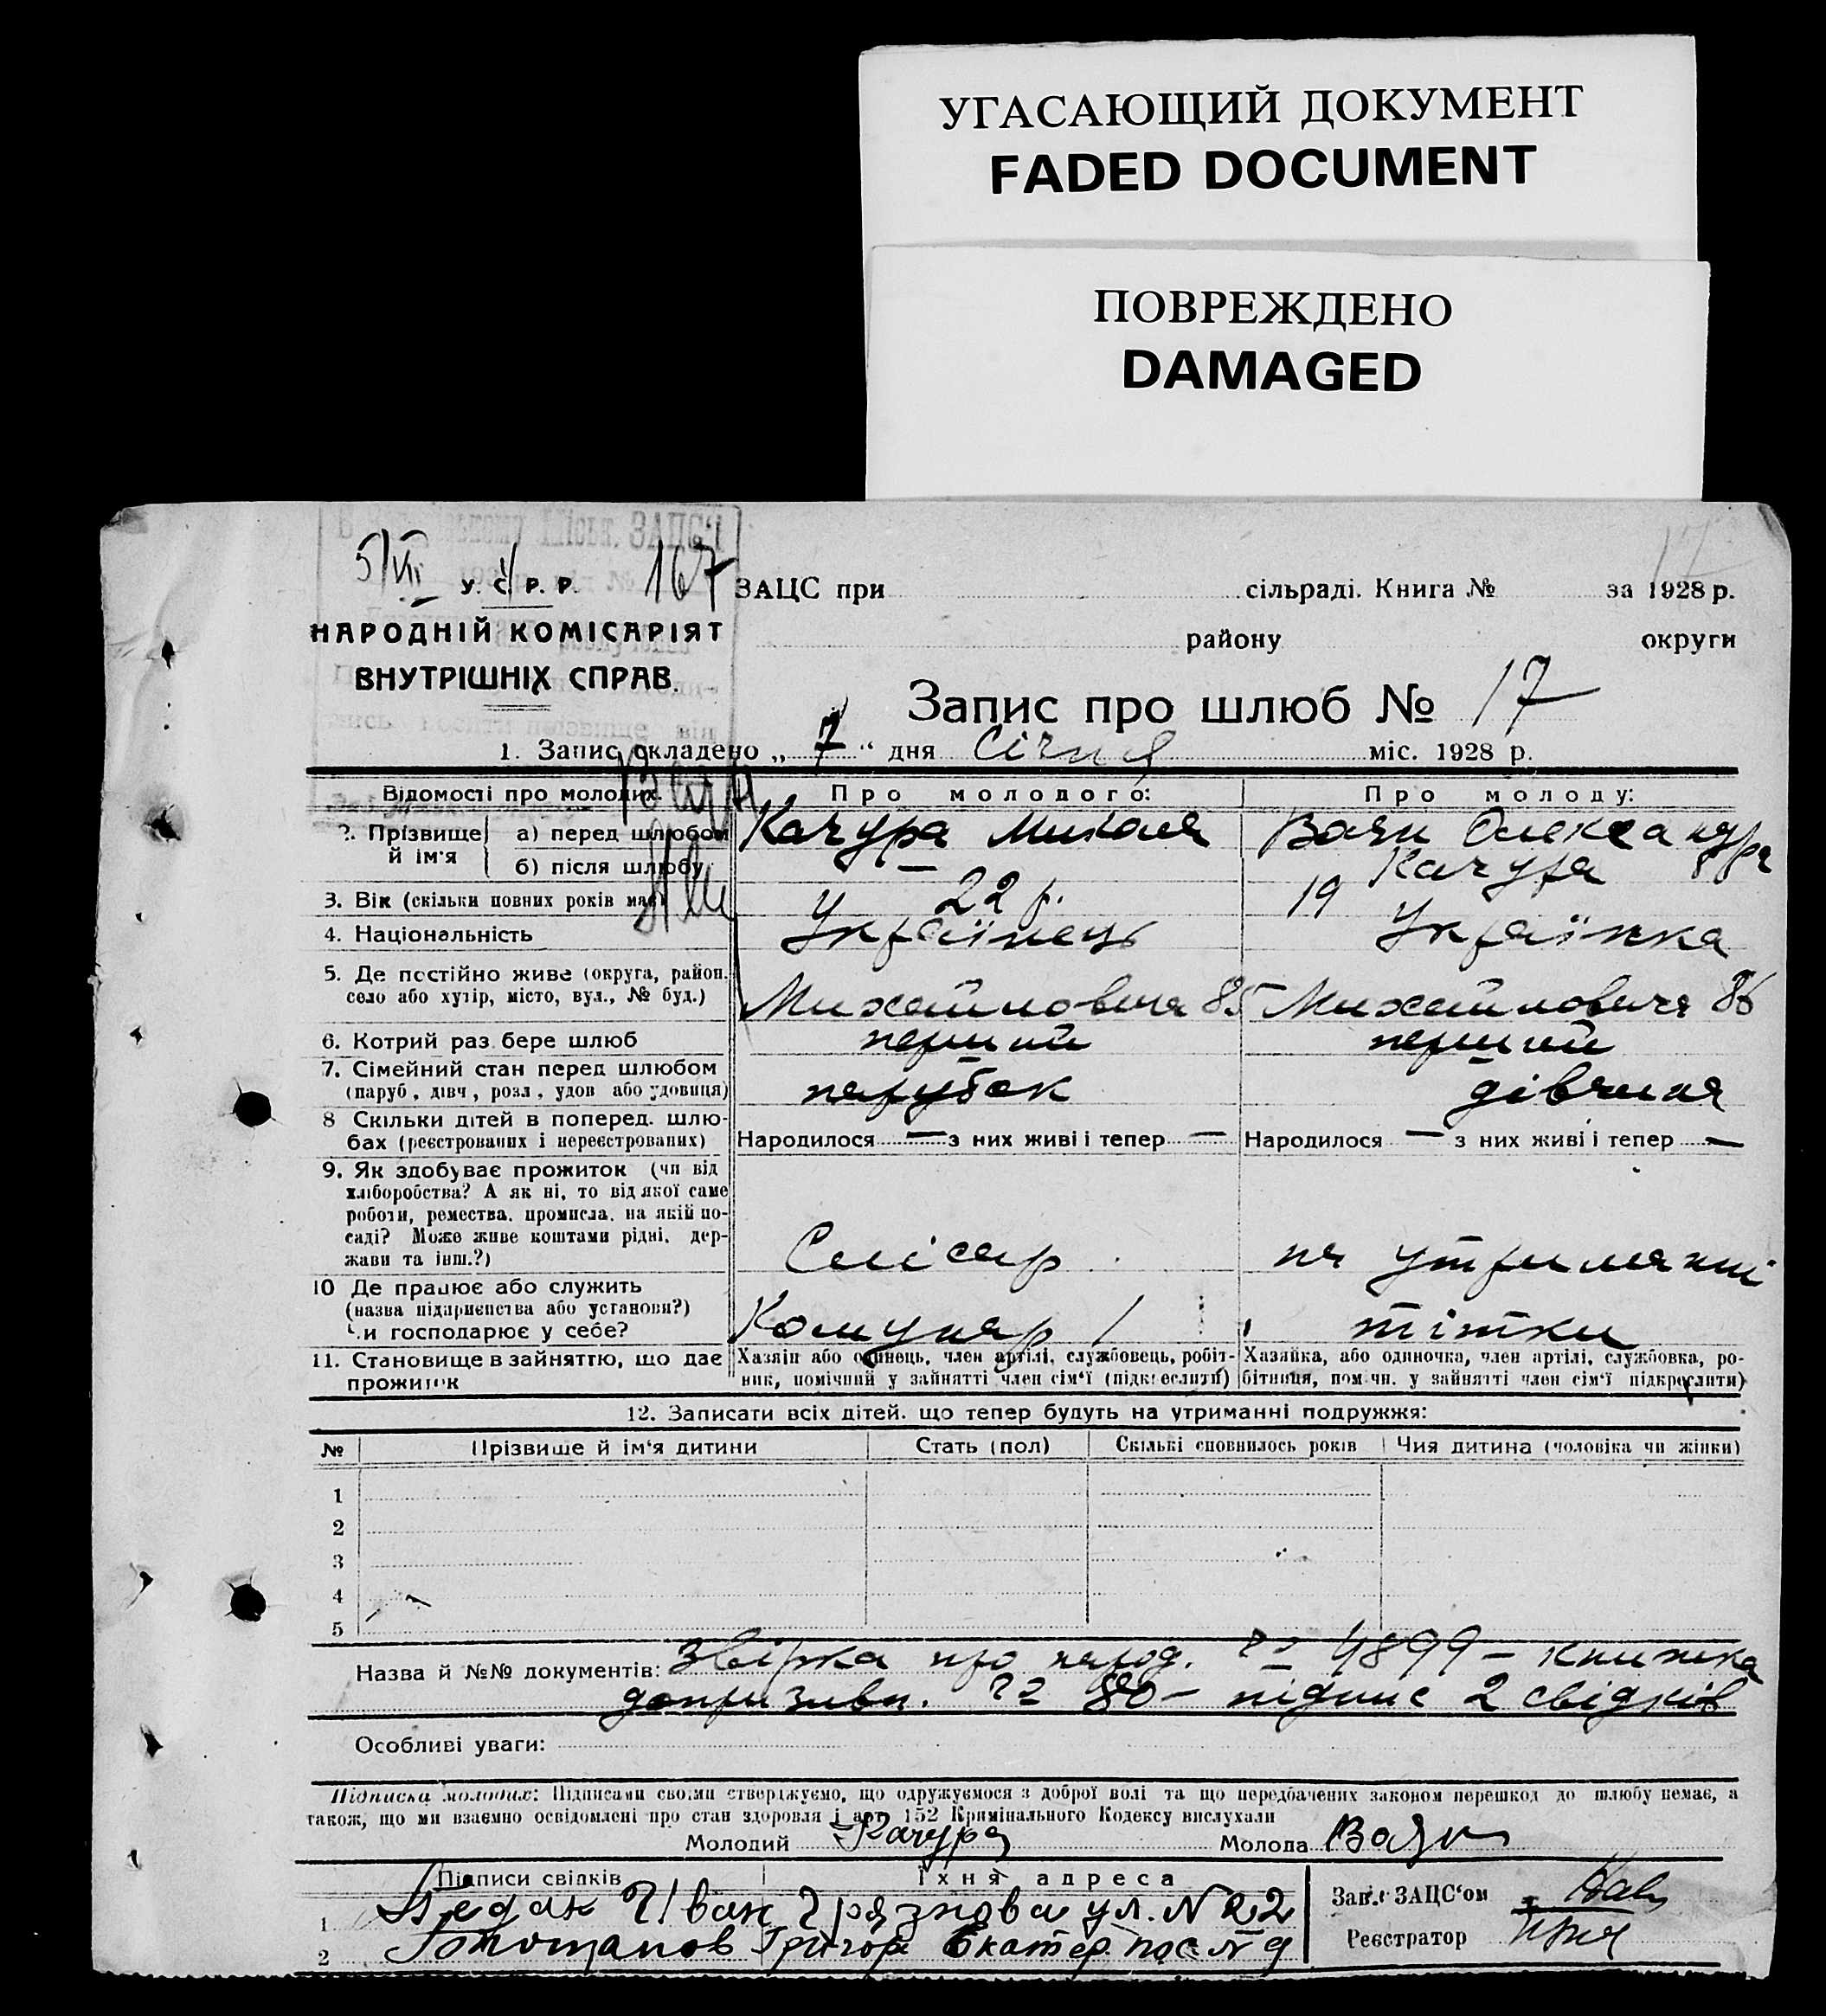 УГАСАЮЩИЙ ДОКУМЕНТ
FADED DOCUMENT
ПОВРЕЖДЕНО
DAMAGED
17
5/VII 167
У. С. Р. Р.
НАРОДНІЙ КОМІСАРІЯТ
ВНУТРІШНІХ СПРАВ.
ЗАЦС при сільраді. Книга № за 1928 р.
району округи
Запис про шлюб № 17
1. Запис складено „ 7 “ дня Січня міс. 1928 р.
Відомості про молодих. Про молодого: Про молоду:
2. Прізвище й ім'я а) перед шлюбом Качура Микола Ваян Олександра
б) після шлюбу — Качура
3. Вік (скільки повних років має) 22 р. 19
4. Національність Українець Українка
5. Де постійно живе (округа, район.
село або хутір, місто, вул., № буд.) 85 86
6. Котрий раз бере шлюб перший перший
7. Сімейний стан перед шлюбом
(паруб, дівч, розл, удов або удовиця) парубок дівчина
8 Скільки дітей в поперед. шлю-
бах (реєстрованих і нереєстрованих) Народилося — з них живі і тепер — Народилося — з них живі і тепер —
9. Як здобуває прожиток (чи від
хліборобства? А як ні, то від якої саме
роботи, ремества, промисла, на якій по-
саді? Може живе коштами рідні, дер-
жави та інш.?) Слісар на утриманні
10 Де працює або служить
(назва підприємства або установи?)
Чи господарює у себе? Комунар тітки
11. Становище в зайняттю, що дає
прожиток
Хазяїн або одинець, член артілі, службовець, робіт-
ник, помічний у зайнятті член сім'ї (підкреслити)
Хазяйка, або одиночка, член артілі, службовка, ро-
бітниця, пом чн. у зайнятті член сім'ї підкреслити)
12. Записати всіх дітей. що тепер будуть на утриманні подружжя:
№ Прізвище й ім'я дитини Стать (пол) Скількі сповнилось років Чия дитина (чоловіка чи жінки)
1
2
3
4
5
Назва й №№ документів: Звірка про народ. № 4899 – книжка
допризивн. № 80 – підпис 2 свідків
Особливі уваги:
Підписка молодих: Підписами своїми стверджуємо, що одружуємося з доброї волі та що передбачених законом перешкод до шлюбу немає, а
також, що ми взаємно освідомлені про стан здоровля і арт. 152 Кримінального Кодексу вислухали
Молодий Качура Молода Ваян
Підписи свідків Їхня адреса
1 Іван Грязнова ул. N 22
2 Григор Екатер. пос N 9
Зав. ЗАЦС'ом
Реєстратор